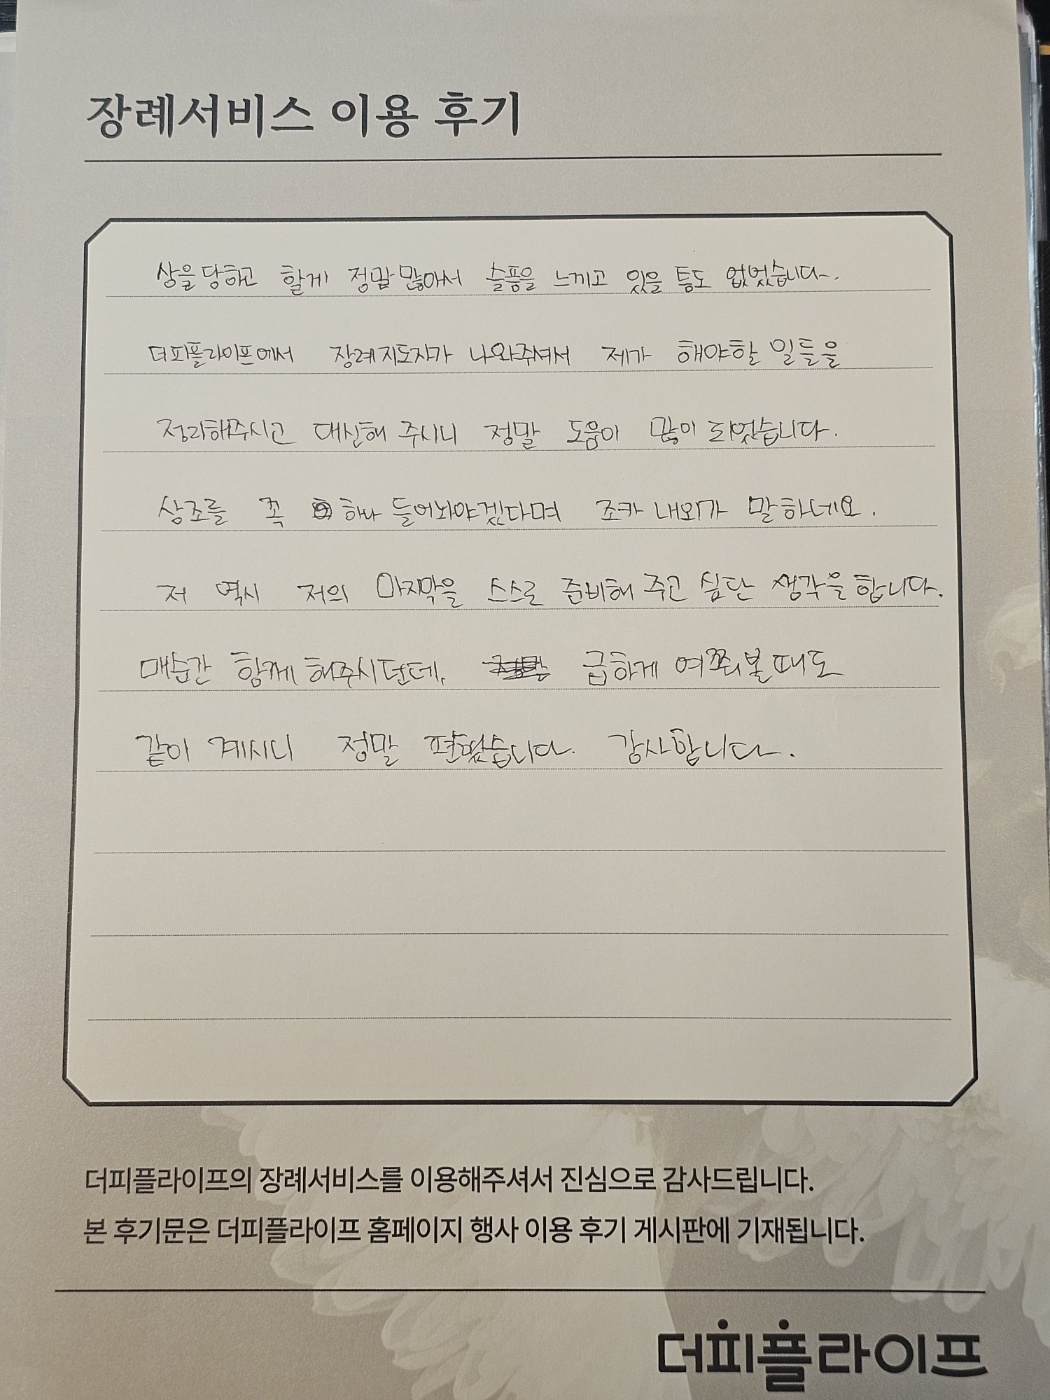 장례서비스 이용 후기
상을 당하고 할게 정말 많아서 슬픔을 느끼고 있을 틈도 없었습니다.
더피플라이프에서 장례지도자가 나와주셔서 제가 해야할 일들을
정리해주시고 대신해 주시니 정말 도움이 많이 되었습니다.
상조를 꼭 하나 들어놔야겠다며 조카 내외가 말하네요.
저 역시 저의 마지막을 스스로 준비해 주고 싶단 생각을 합니다.
매순간 함께 해주시던데, 급하게 여쭤볼때도
같이 계시니 정말 편했습니다. 감사합니다.
더피플라이프의 장례서비스를 이용해주셔서 진심으로 감사드립니다.
본 후기문은 더피플라이프 홈페이지 행사 이용 후기 게시판에 기재됩니다.
더피플라이프